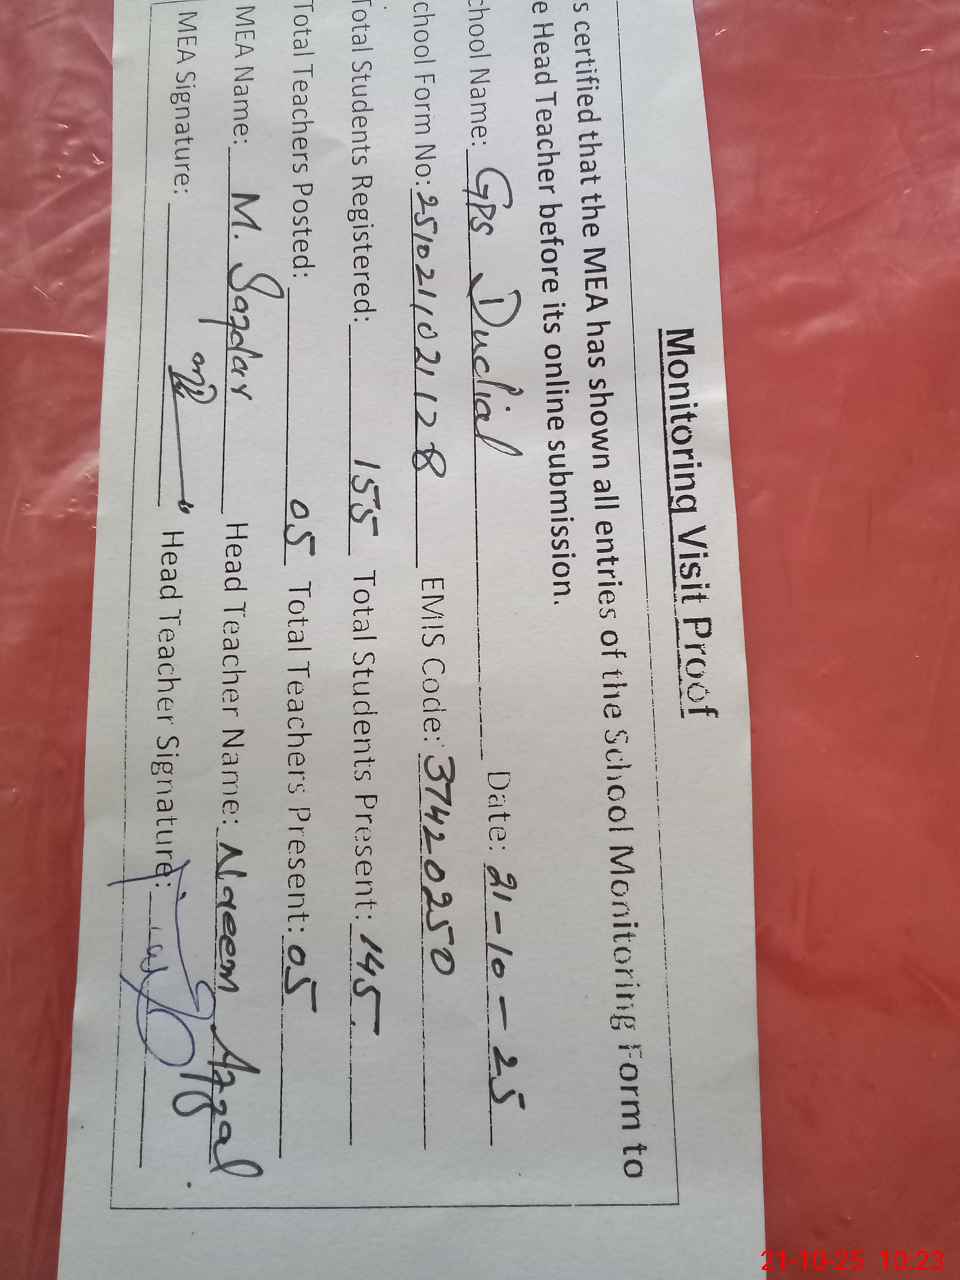 Monitoring Visit Proof
s certified that the MEA has shown all entries of the School Monitoring Form to
e Head Teacher before its online submission.
chool Name: GPS Dudial Date: 21-10-25
chool Form No: 2510211021128 EMIS Code: 37420250
Total Students Registered: 155 Total Students Present: 145
Total Teachers Posted: 05 Total Teachers Present: 05
MEA Name: M. Safdar Head Teacher Name: Naeem Afzal
MEA Signature: Head Teacher Signature:
21-10-25 10:23